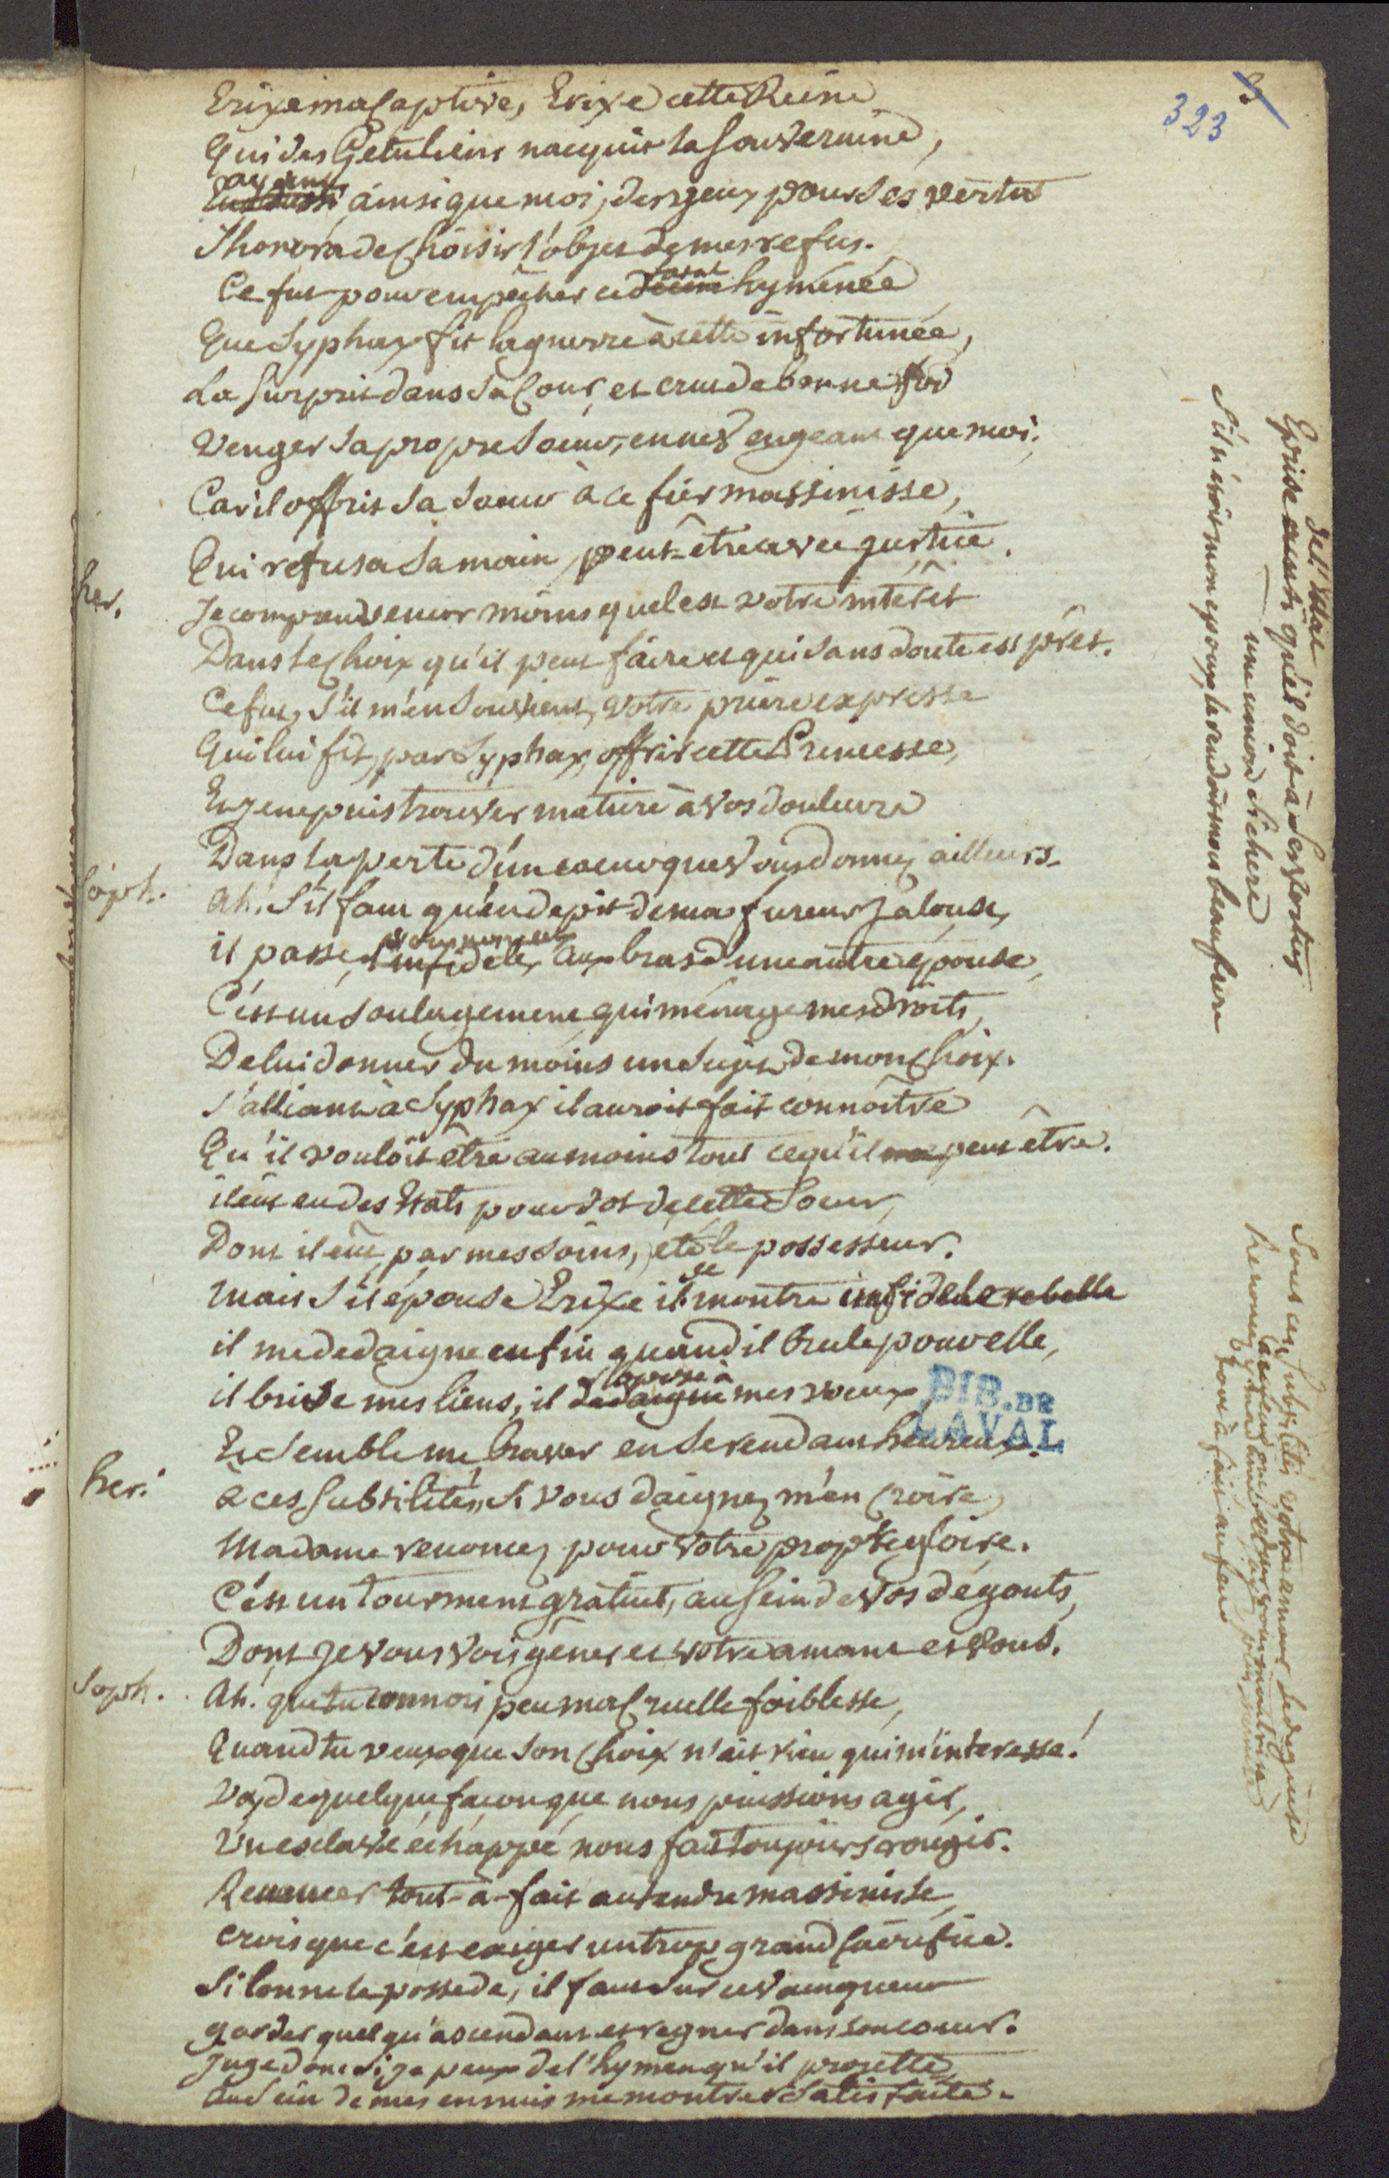 323
Erixe ma Captive, Erixe cette Reine
Qui des Getuliens nacquit la Souveraine,
ayant
ainsi que moi, des yeux pour ses vertus
Thonora de choisir l'objet de mes refus.
fatal
Ce fut pour empêcher ce hyménée
Que Syphax fit la guerre à cette infortunée,
La Surprit dans sa Cour, et crut de bonne foi
Venger sa propre Soeur, en ne vengeant que moi,
Car il offrit sa soeur à ce fier massinisse,
Qui refusa sa main, peut-être avec justice.
her. Je comprends encor moins quel est votre intérêt
Dans le choix qu'il peut faire et qui sans doute est prêt.
Ce fut, s'il m'en souvient, votre priere expresse
Qui lui fit, par Syphax, offrir cette Princesse,
Et je ne puis trouver matiere à vos douleurs
Dans la perte d'un coeur que vous donniez ailleurs.
Soph. Ah, s'il faut qu'en depit de ma fureur jalouse,
il passe, l'infidele, aux bras d'une autre épouse,
C'est un soulagement qui ménage mes droits,
De lui donner du moins un sujet de mon choix.
S'alliant à Syphax il auroit fait connoître
Qu'il vouloit être au moins tout ce qu'il peut être.
il eut eu des Etats pour dot de cette Soeur,
Dont il eût, par mes soins, eté le possesseur.
se
mais s'il épouse Erixe il montre infidele rebelle
il me dedaigne enfin quand il brule pour elle,
oppose à
il brise mes liens, il dedaigne mes voeux
Et semble me braver en se rendant heureux.
BIB. DE
LAVAL
her. à ces subtilités, si vous daignez m'en croire,
Madame renoncez pour votre propre gloire.
C'est un tourment gratuit, au sein de vos dégouts,
Dont je vous vois gêner et votre amant et vous.
Soph. Ah. que tu connois peu ma cruelle foiblesse,
Quand tu veux que son choix n'ait rien qui m'interesse!
Va, de quelque façon que nous puissions agir,
Un esclave échappé nous fait toujours rougir.
Renoncer tout-à-fait au tendre massinisse,
crois que c'est exiger un trop grand sacrifice.
Si l'on ne le possede, il faut sur ce vainqueur
garder quelqu'ascendant et regner dans son coeur.
juge donc si je peux de l'hymen qu'il projette,
au sein de mes ennuis me montrer satisfaite.
de l'éclat
Eprise qu'il doit à ses vertus
une union si chere
S'il n'étoit mon epoux, le rendoit mon beaufrere
Sous ces subtilités votre amour se deguise
renoncez
tout à fait au feu